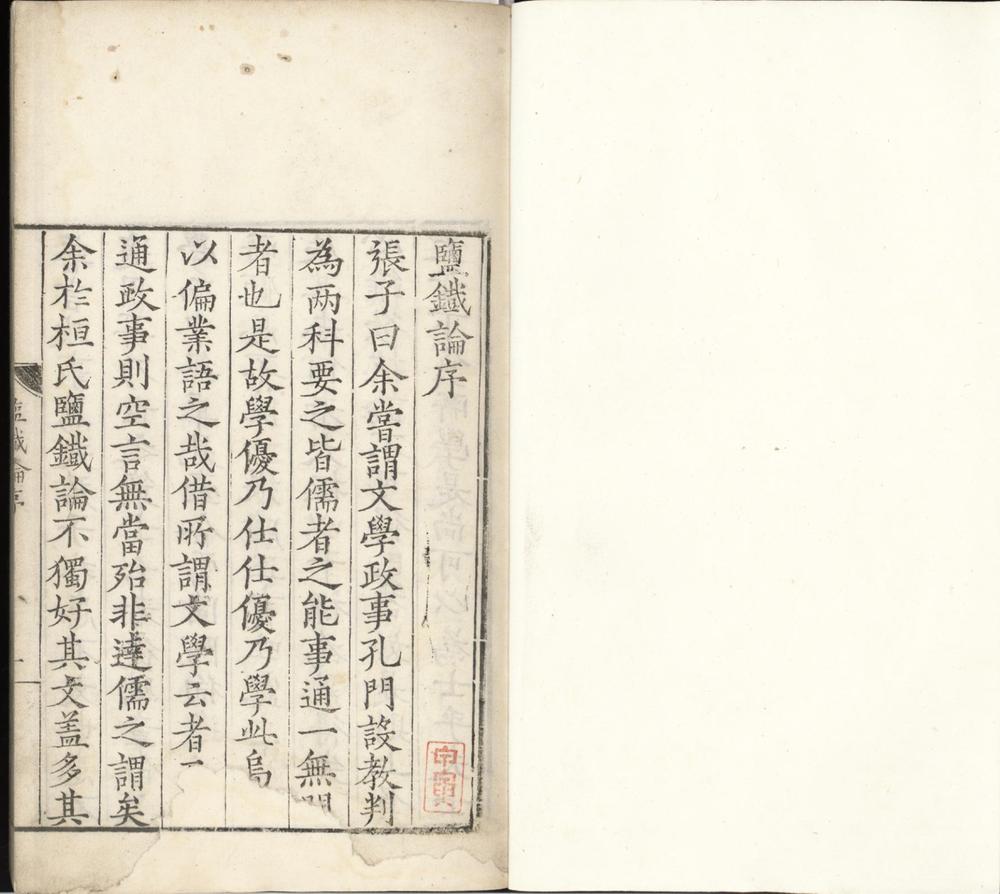 鹽鐵論序
張子曰余嘗謂文學政事孔門設教判
為两科要之皆儒者之能事通一無
者也是故學優乃仕仕優乃學此烏
以偏業語之哉借所謂文學云者
通政事則空言無當殆非達儒之謂矣
余於桓氏鹽鐵論不獨好其文盖多其
鹽鐵論序
一